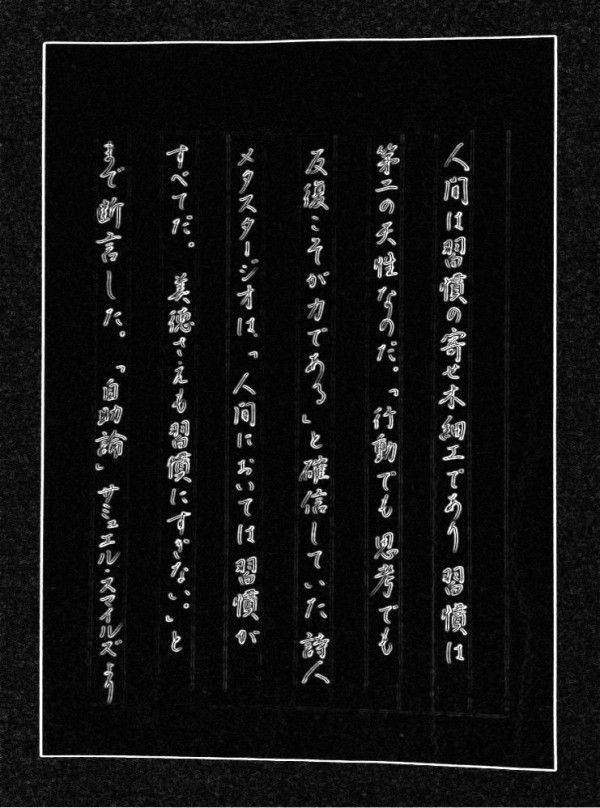 人間は習慣の寄せ木細工であり習慣は
第二の天性なのだ。「行動でも思考でも
反復こそが力である」と確信していた詩人
メタスタージオは、「人間においては習慣が
すべてだ。美徳さえも習慣にすぎない。」と
まで断言した。「自助論」サミュエル・スマイルズより